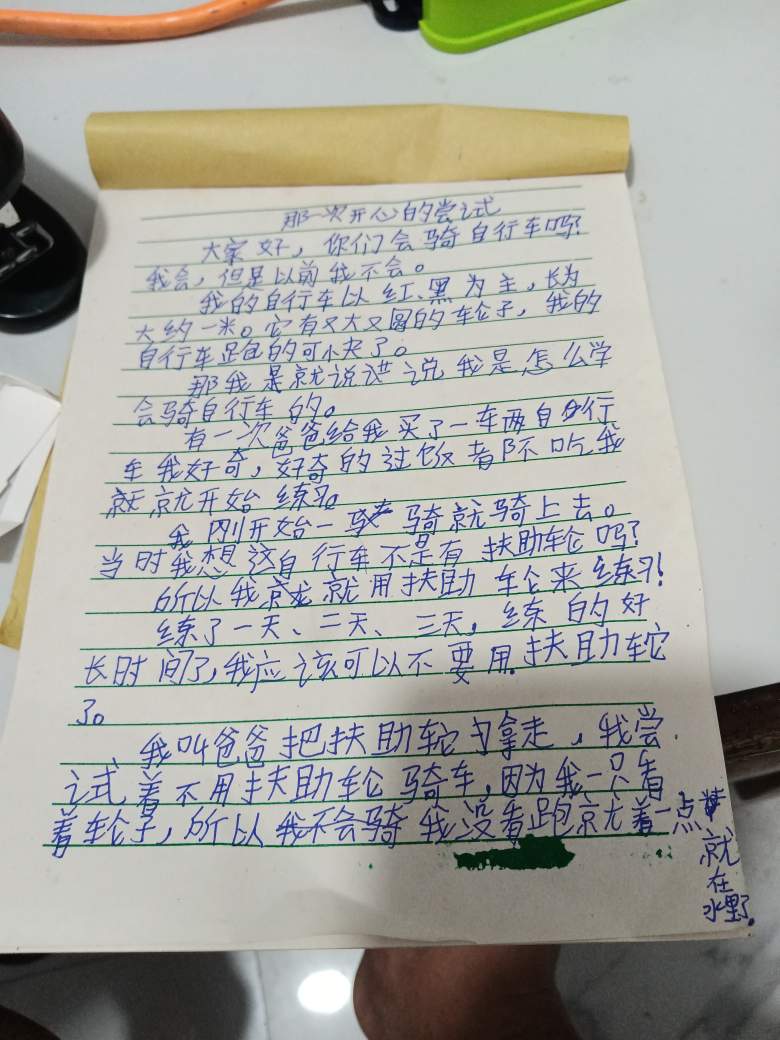 那一次开心的尝试
大家好，你们会骑自行车吗?
我会，但是以前我不会。
我的自行车以红、黑为主，长为
大约一米。它有又大又圆的车轮子，我的
自行车跑的可小夬了。
那我是就说说 说我是怎么学
会骑自行车的。
有一次爸爸给我买了一车两自行
车我好奇，好奇的过饭者阝不吃我
就就开始练习。
我刚开始一 骑就骑上去。
当时我想这自行车不是有扶助轮吗?
所以我就就用扶助车仑来练习!
练了一天、二天、三天，练的好
长时间了，我应该可以不要用扶助轮
了。
我叫爸爸把扶助轮拿走，我尝
试着不用扶助轮骑车，因为我一只看
着车轮子，所以我不会骑我没看跑就着一点
就
在
水里了。